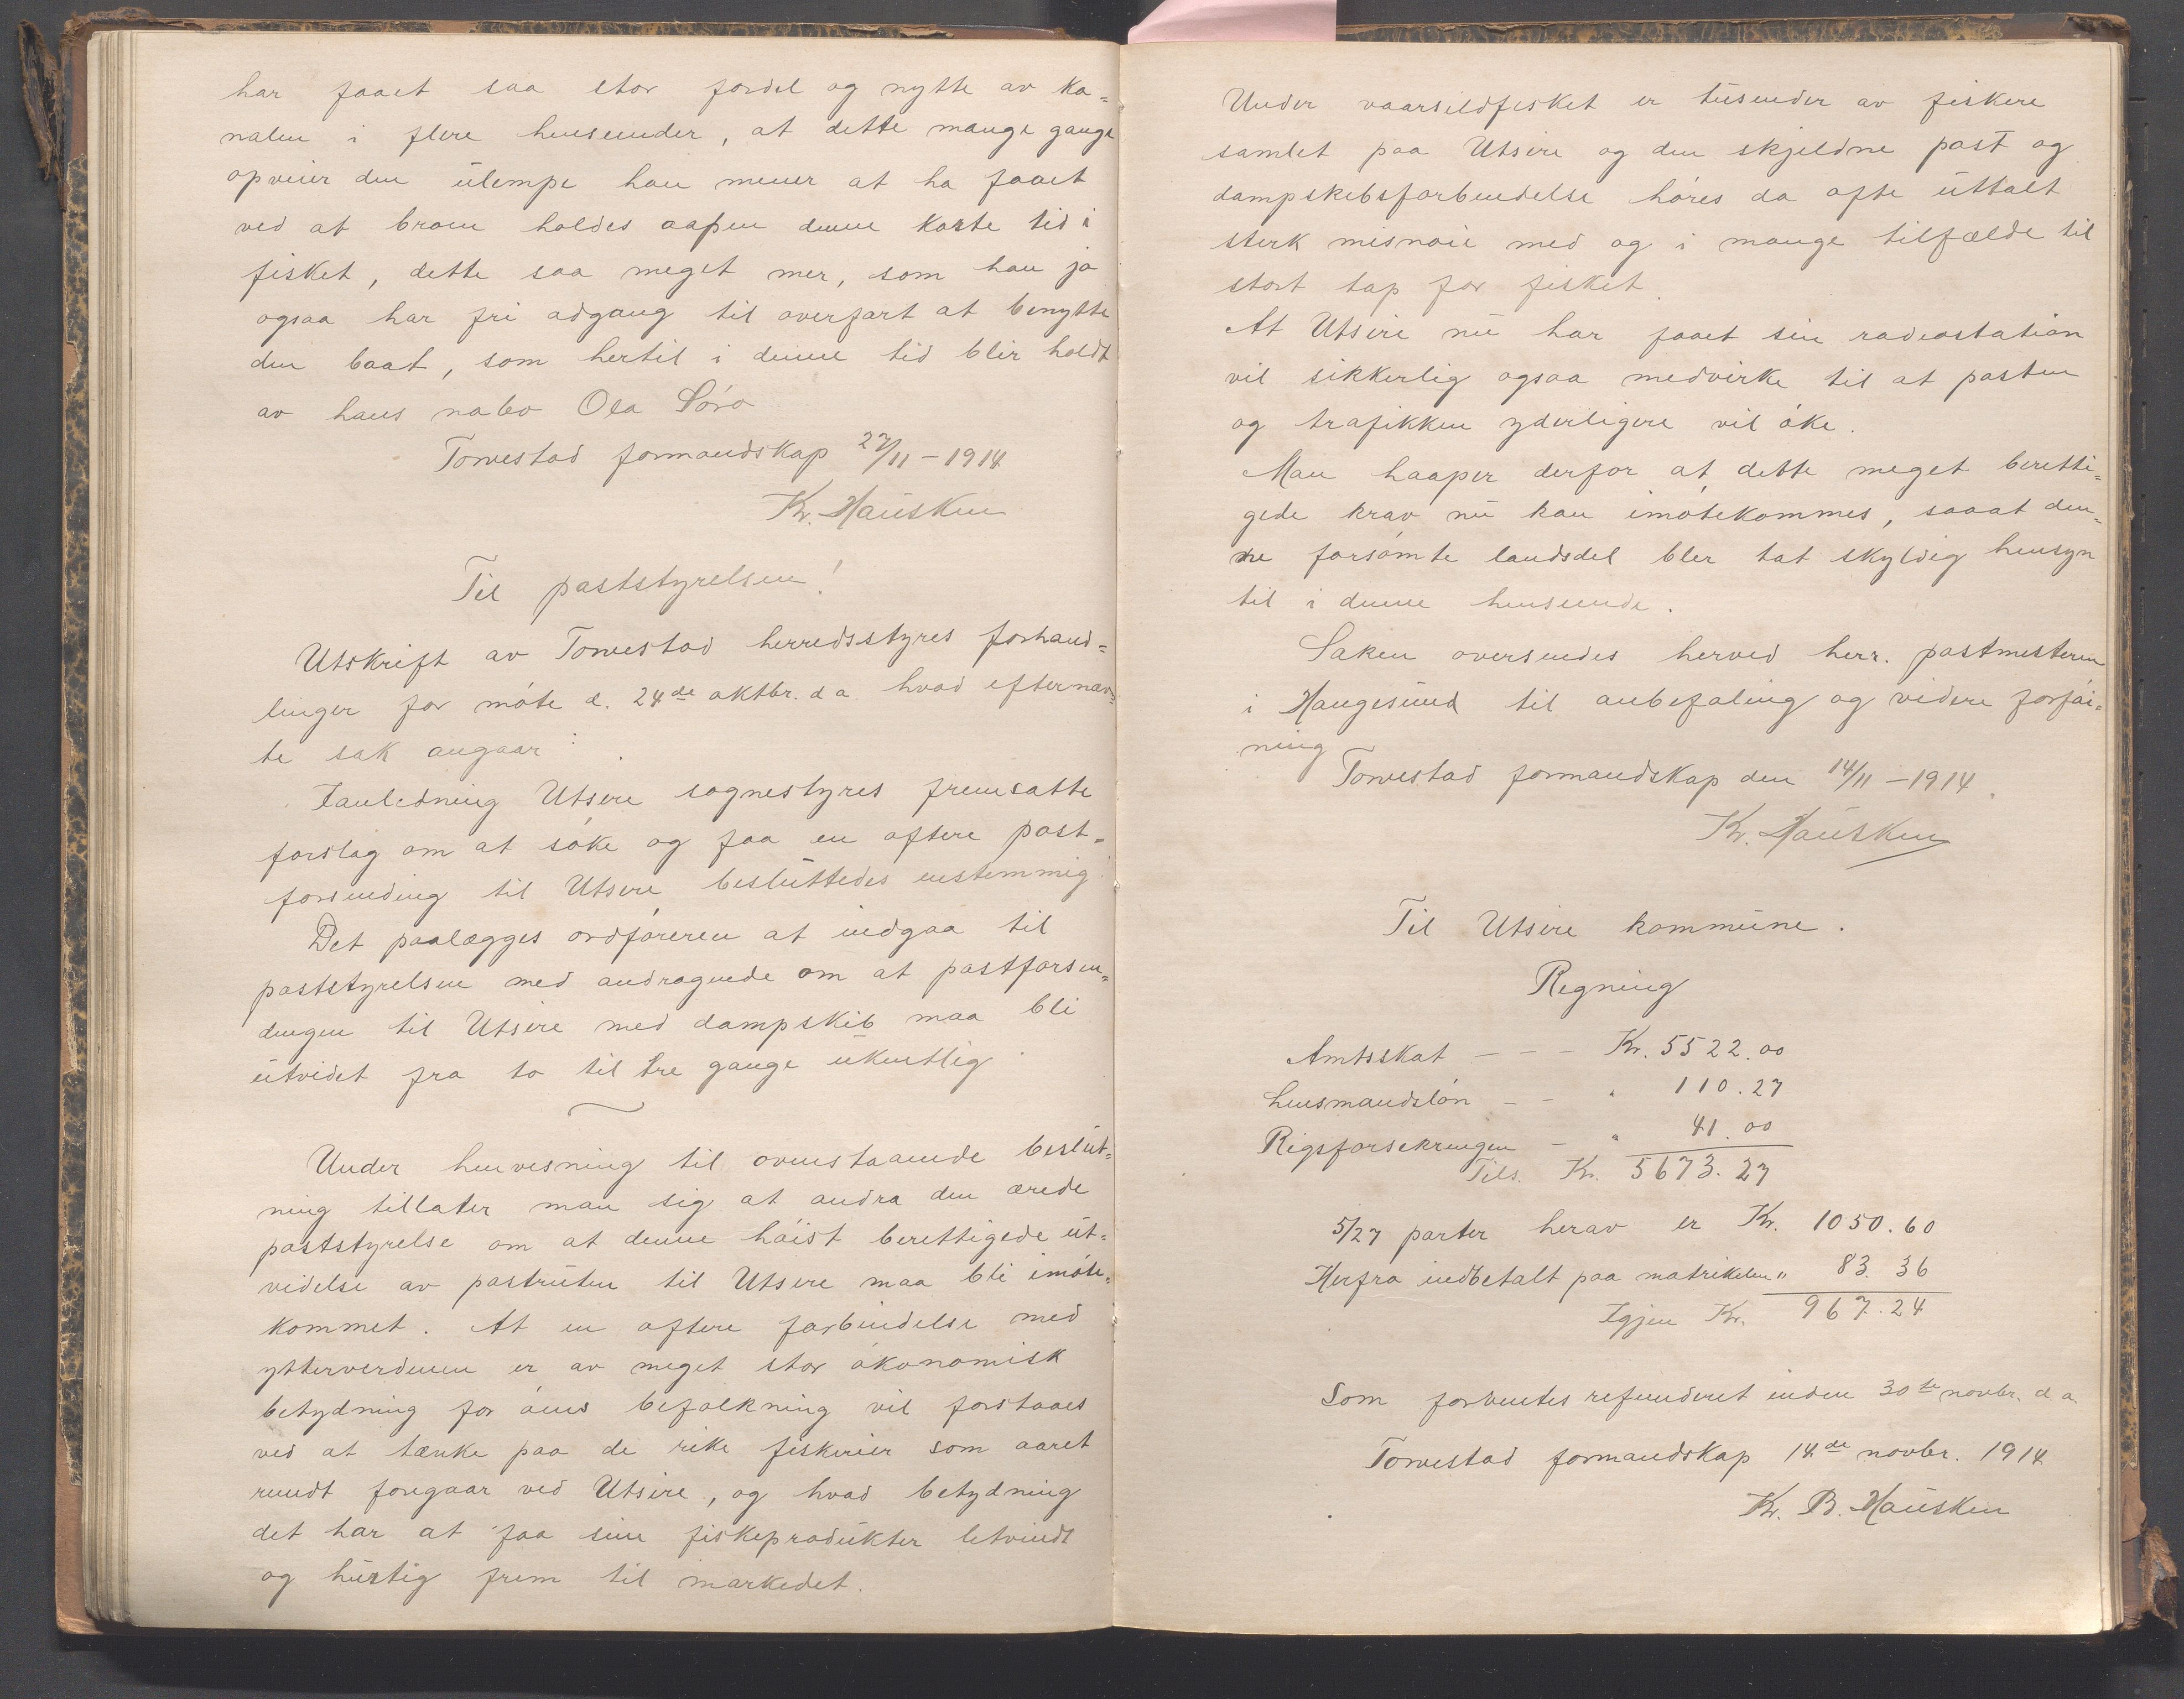 har faaet saa stor fordel og nytte av ka=
nalen i flere henseender, at dette mange gange
opveier den ulempe han mener at ha faaet
ved at broen holdes aapen denne korte tid i
fisket, dette saa meget mer, som han jo
ogsaa har fri adgang til overfart at benytte
den baat, som hertil i denne tid blir holdt
av hans nabo Ola Sørø
Torvestad formandskap 27/11-1914
Kr. Hausken
Til poststyrelsen!
Utskrift av Torvestad herredsstyres forhand=
linger for møte d. 24de oktbr. d a hvad efternævn=
te sak angaar:
I anledning Utsire sognestyres fremsatte
forslag om at søke og faa en oftere post-
forsending til Utsire besluttedes enstemmig:
Det paalægges ordføreren at indgaa til
poststyrelsen med andragende om at postforsen=
dingen til Utsire med dampskib maa bli
utvidet fra to til tre gange ukentlig.
Under henvisning til ovenstaaende beslut=
ning tillater man sig at andra den ærede
poststyrelse om at denne høist berettigede ut=
videlse av postruten til Utsire maa bli imøte=
kommet. At en oftere forbindelse med
ytterverdenen er av meget stor økonomisk
betydning for øens befolkning vil forstaaes
ved at tænke paa de rike fiskerier som aaret
rundt foregaar ved Utsire, og hvad betydning
det har at faa sine fiskeprodukter letvindt
og hurtig frem til markedet.
Under vaarsildfisket er tusender av fiskere
samlet paa Utsire og den skjeldne post og
dampskibsforbindelse høres da ofte uttalt
sterk misnøie med og i mange tilfælde til
stort tap for fisket.
At Utsire nu har faaet sin radiostation
vil sikkerlig ogsaa medvirke til at posten
og trafikken yderligere vil øke.
Man haaper derfor at dette meget beretti=
gede krav nu kan imøtekommes, saaat den=
ne forsømte landsdel blir tat skyldig hensyn
til i denne henseende.
Saken oversendes herved herr. postmesteren
i Haugesund til anbefaling og videre forføi=
ning
Torvestad formandskap den 14/11-1914.
Kr. Hausken
Til Utsire kommune.
Regning
Amtsskat - - - Kr. 5522.00
Lensmandsløn - - " 110.27
Rigsforsikringen - " 41.00
Tils. Kr. 5673.27
5/27 parter herav er Kr. 1050.60
Herfra indbetalt paa matrikelen " 83.36
Igjen Kr. 967.24
Som forventes refunderet inden 30te novbr. d a
Torvestad formandskap 14de novbr. 1914
Kr. B. Hausken